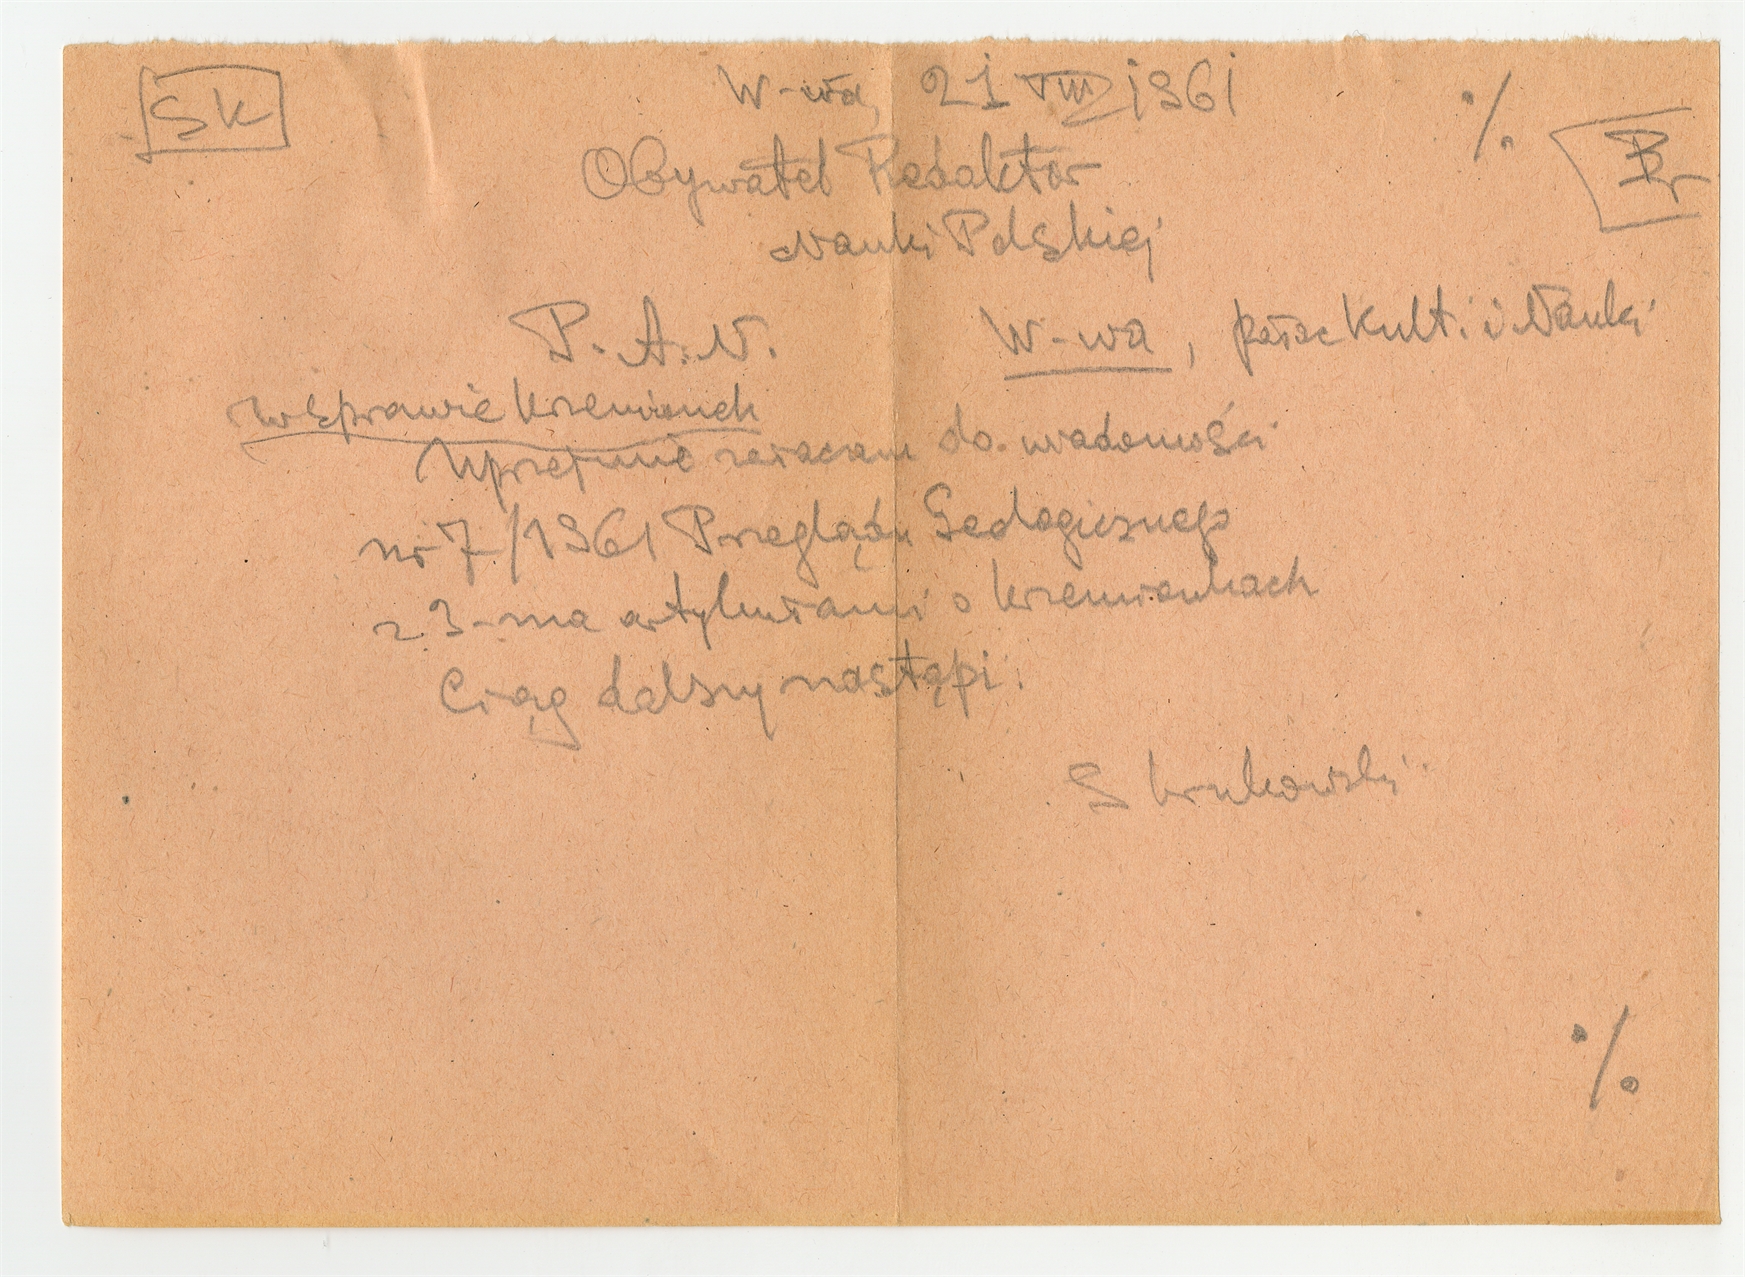 SK
W-wa, 21 VIII 1961
./.
Br
Obywatel Redaktor
Nauki Polskiej
P.A.N.
W-wa, pałac Kult. i Nauki
W sprawie krzemionek
Uprzejmie załączam do wiadomości
nr 7/1961 Przeglądu Geologicznego
z 3-ma artykułami o krzemionkach
Ciąg dalszy nastąpi.
S Krukowski
./.